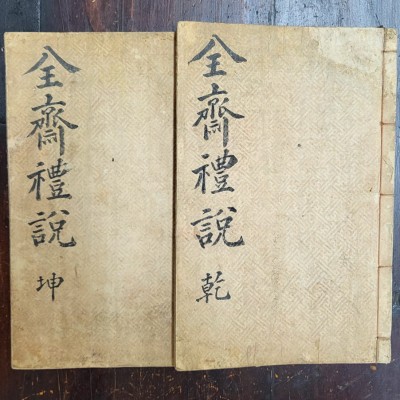 全齋禮說
乾
全齋禮說
坤